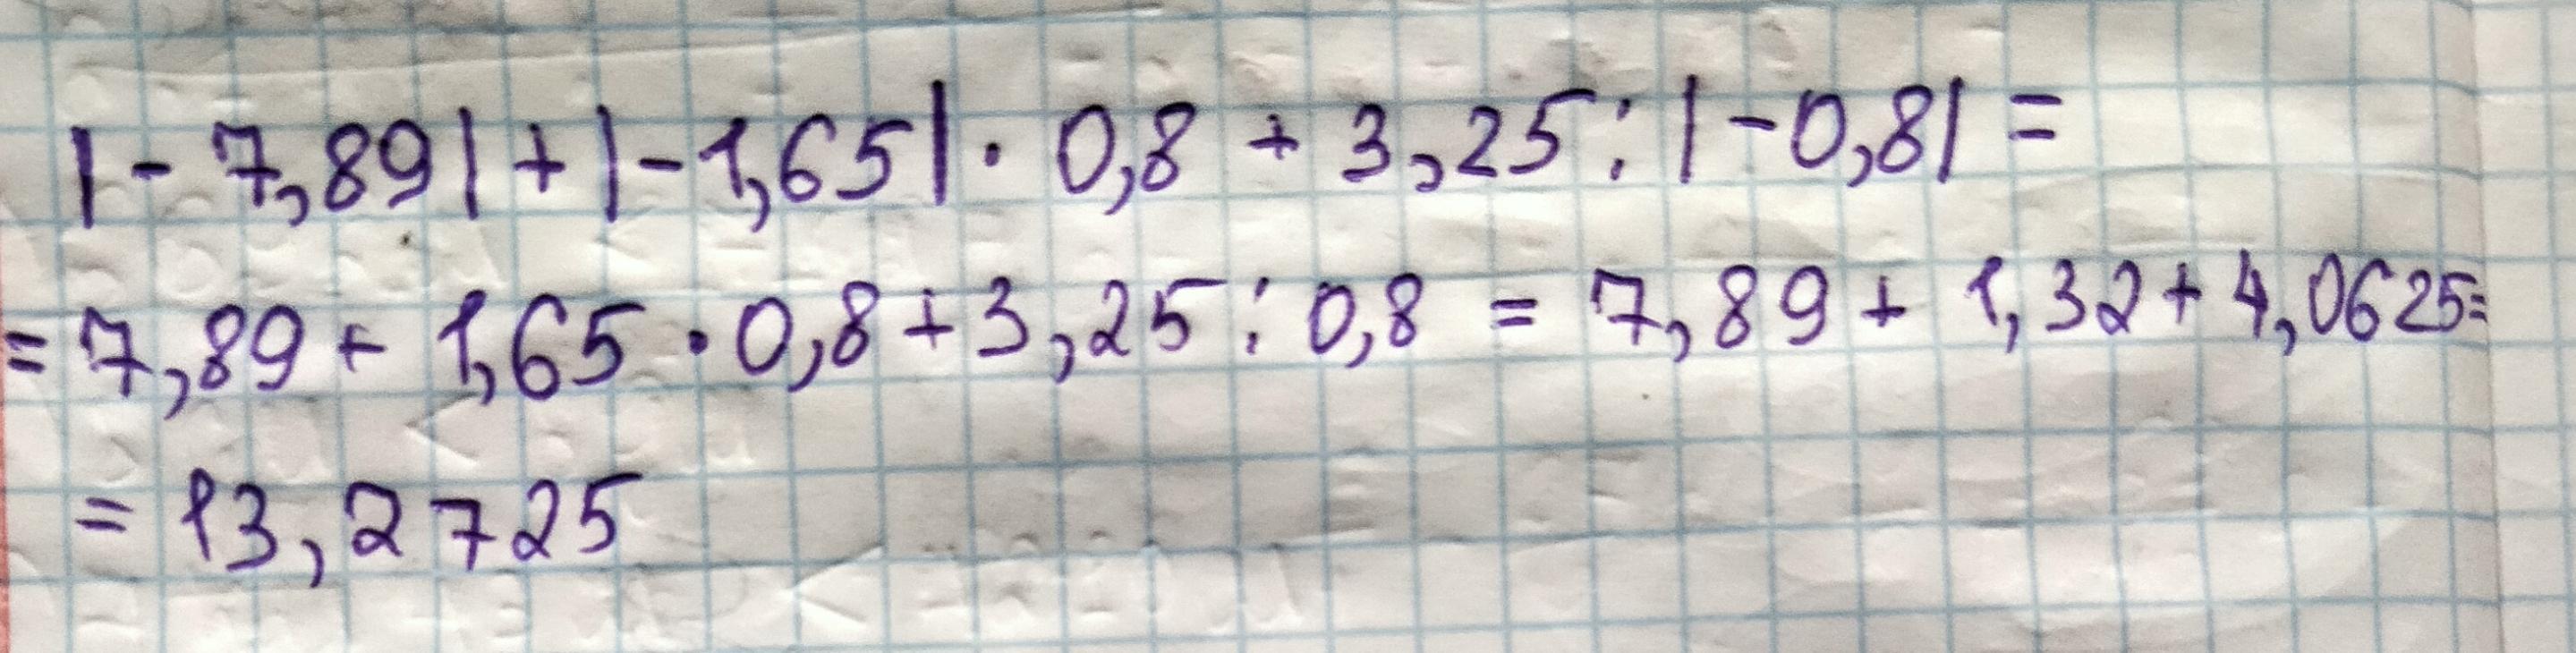 |-7,89|+|-1,65|·0,8+3,25:|-0,8|=
=7,89+1,65·0,8+3,25:0,8=7,89+1,32+4,0625=
=13,2725